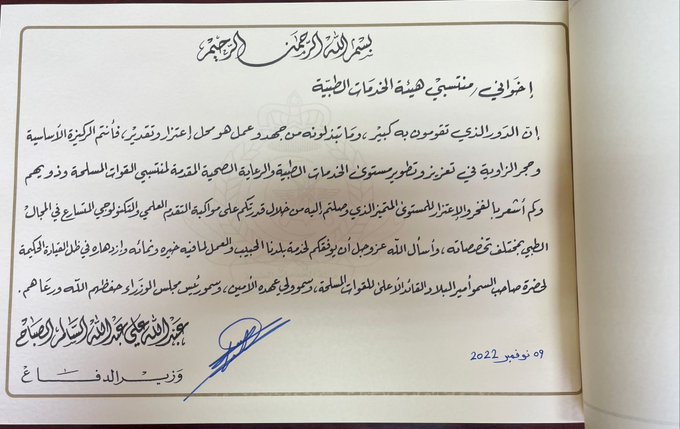 بسم الله الرحمن الرحيم
إخواني / منتسبي هيئة الخدمات الطبية
إن الدور الذي تقومون به كبير، وما تبذلونه من جهد وعمل هو محل إعتزاز وتقدير، فأنتم الركيزة الأساسية
وحجر الزاوية في تعزيز وتطوير مستوى الخدمات الطبية والرعاية الصحية المقدمة لمنتسبي القوات المسلحة وذويهم
وكم أشعر بالفخر والإعتزاز للمستوى المتميز الذي وصلتم إليه من خلال قدرتكم على مواكبة التقدم العلمي والتكنولوجي المتسارع في المجال
الطبي بمختلف تخصصاته، وأسأل الله عز وجل أن يوفقكم لخدمة بلدنا الحبيب والعمل لما فيه خيره ونمائه وازدهاره في ظل القيادة الحكيمة
لحضرة صاحب السمو أمير البلاد القائد الأعلى للقوات المسلحة، وسمو ولي عهده الأمين، وسمو رئيس مجلس الوزراء حفظهم الله ورعاهم.
عبدالله علي عبدالله السالم الصباح
وزير الدفاع
09 نوفمبر 2022